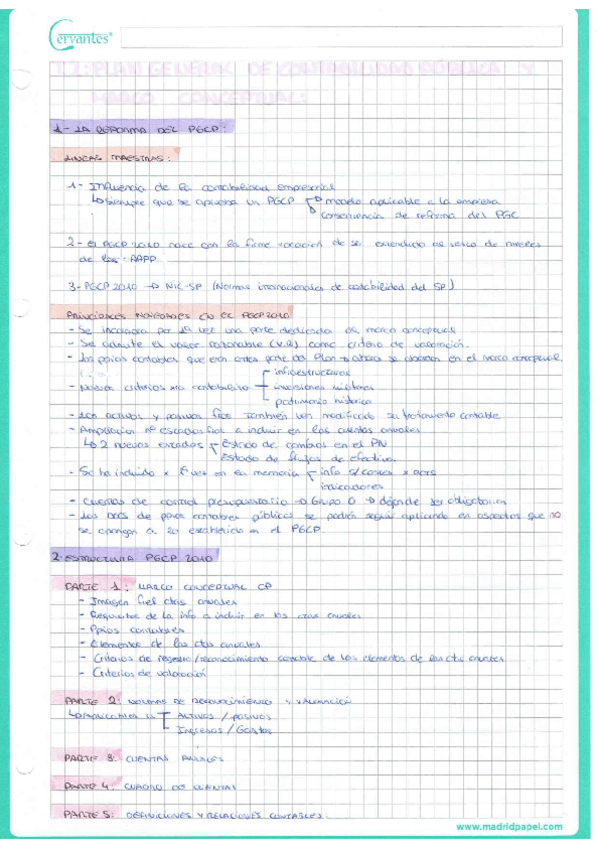 Cervantes
T.2: PLAN GENERAL DE CONTABILIDAD PÚBLICA Y
MARCO CONCEPTUAL:
1- LA REFORMA DEL PGCP:
LINEAS MAESTRAS:
1- Influencia de la contabilidad empresarial
↳ siempre que se aprueba un PGCP → modelo aplicable a la empresa
→ consecuencia de reforma del PGC
2- El PGCP 2010 nace con la firme vocación de ser extendido al resto de niveles
de las AAPP
3- PGCP 2010 → NIC-SP (Normas internacionales de contabilidad del SP)
PRINCIPALES NOVEDADES EN EL PGCP 2010
- Se incorpora por 1ª vez una parte dedicada al marco conceptual
- Se admite el valor razonable (V.R) como criterio de valoración.
- Los ppios contables que eran antes parte del Plan → ahora se abordan en el marco conceptual
- Nuevos criterios contabiliz infraestructuras
inversiones militares
patrimonio histórico
- Los activos y pasivos fros también ven modificado su tratamiento contable
- Ampliación nº estados fros a incluir en las cuentas anuales
↳ 2 nuevos estados Estado de cambios en el PN
Estado de flujos de efectivo.
- Se ha incluido x 1ª vez en la memoria info s/costes x
indicadores
- Cuentas de control presupuestario → Grupo 0 → de ser obligatorio
- Los DOCS de ppios contables públicos se podrán seguir aplicando en aspectos que no
se opongan a lo establecido en el PGCP.
2- ESTRUCTURA PGCP 2010
PARTE 1: MARCO CONCEPTUAL CP
- Imagen fiel ctas anuales
- Requisitos de la info a incluir en las ctas anuales
- Ppios contables
- Elementos de las ctas anuales
- Criterios de registro/reconocimiento contable de los elementos de las cta anuales
- Criterios de valoración
PARTE 2: NORMAS DE RECONOCIMIENTO Y VALORACIÓN
↳ aplicables a ACTIVOS / PASIVOS
Ingresos / Gastos
PARTE 3: CUENTAS ANUALES
PARTE 4: CUADRO DE CUENTAS
PARTE 5: DEFINICIONES Y RELACIONES CONTABLES.
www.madridpapel.com